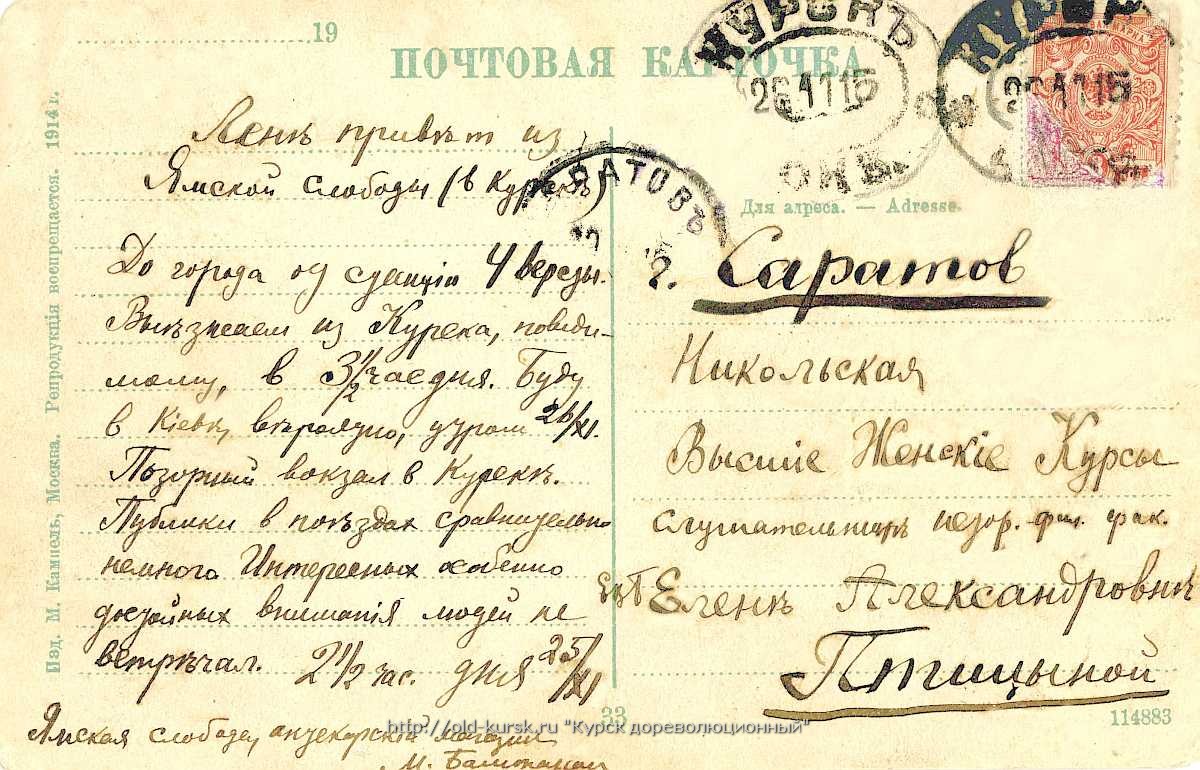 19
ПОЧТОВАЯ КАРТОЧКА
КУРСКЪ
26 11 15
КУРСК
26 11 15
САРАТОВЪ
Для адреса. — Adresse.
Изд. М. Кампель, Москва. Репродукція воспрещается. 1914 г.
Ленѣ привѣт из
Ямской слободы (в Курскѣ)
До города от станціи 4 версты.
Выѣзжаем из Курска, повиди-
мому, в 3½ час дня. Буду
в Кіевѣ, вѣроятно, утром 26/XI.
Позорный вокзал в Курскѣ.
Публики в поѣздах сравнительно
немного Интересных особенно
достойных вниманія людей не
встрѣчал. 2½ час. дня 25/XI
Ямская слобода, аптекарскій магазин
М.
г. Саратов
Никольская
Высшіе Женскіе Курсы
слушательницѣ истор. фил. фак.
Еленѣ Александровнѣ
Птицыной
33
114883
http://old-kursk.ru "Курск дореволюционный"